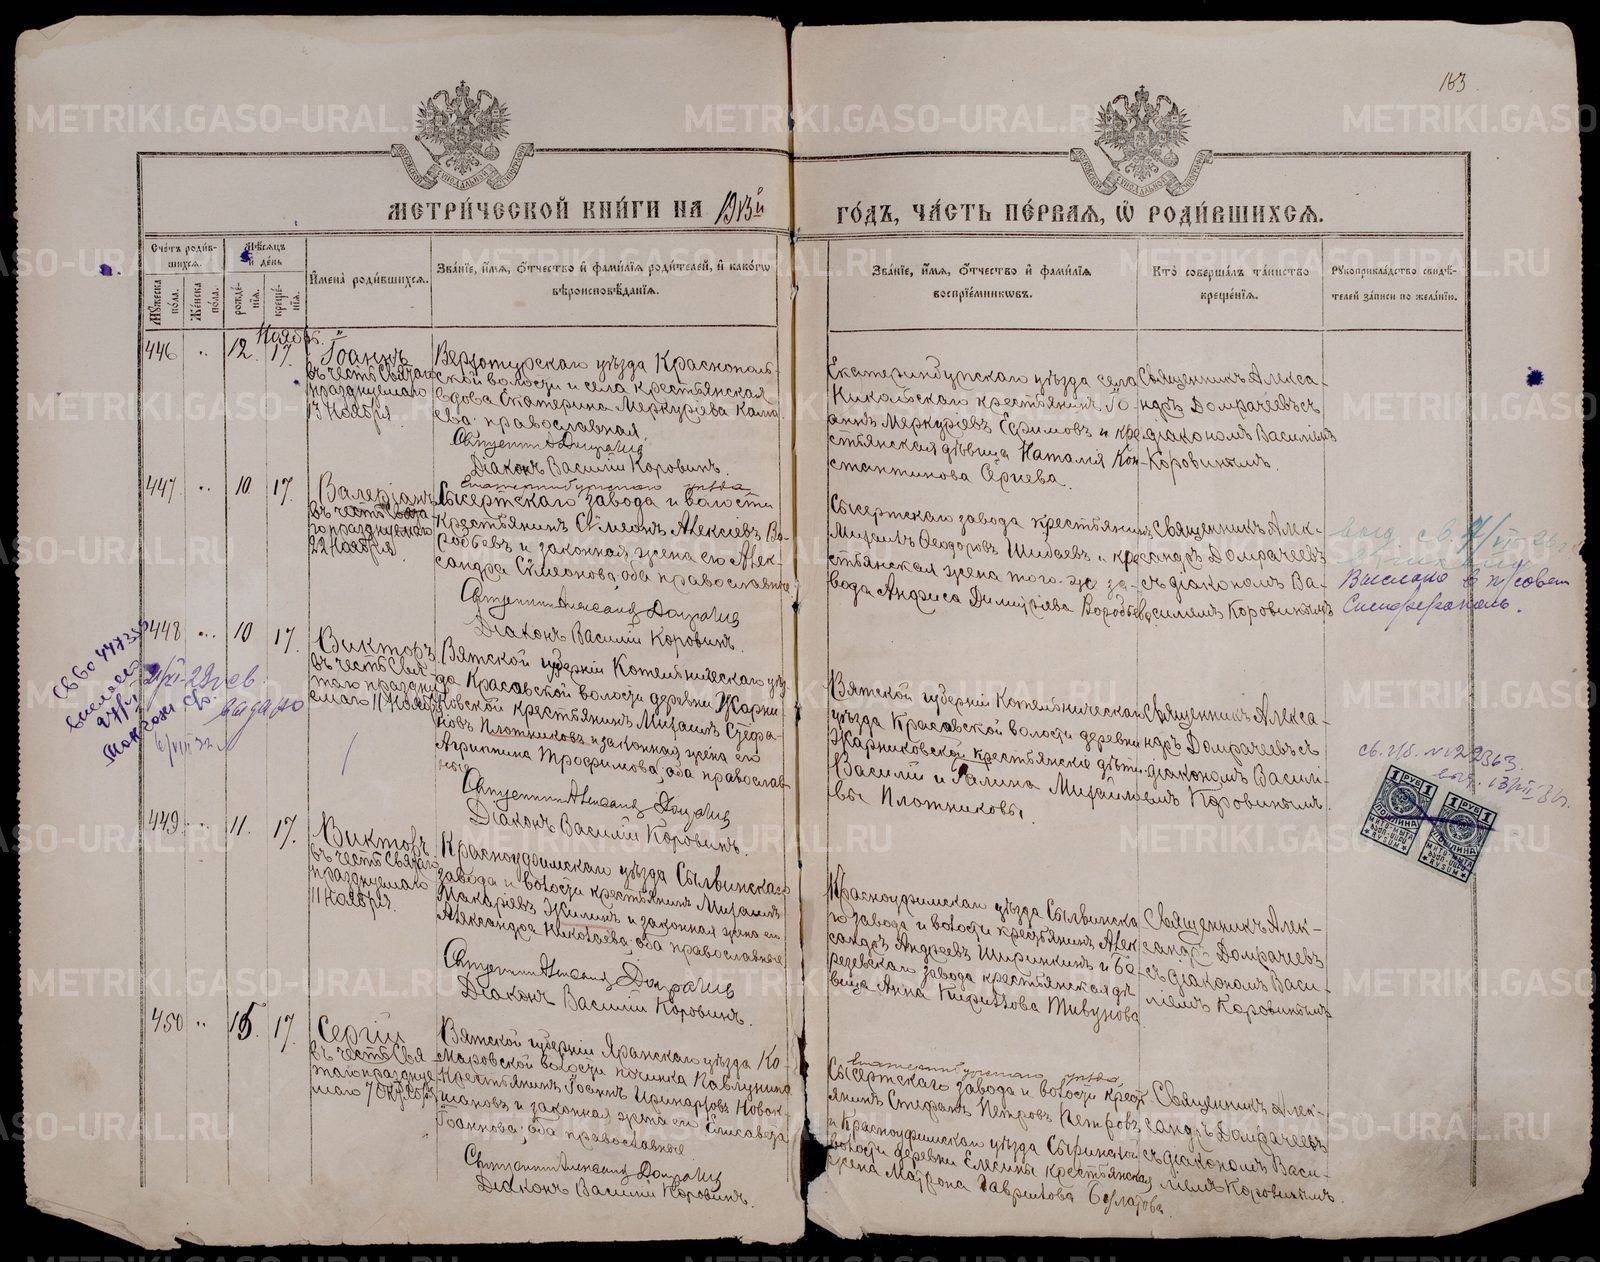 163
МЕТРИ́ЧЕСКОЙ КНИ́ГИ НА 1913й
ГО́ДЪ, ЧА́СТЬ ПЕ́РВАЯ, Ѿ РОДИ́ВШИХСЯ.
Сче́тъ роди́в-
шихся.
Мѣ́сяцъ
и҆ де́нь
Мꙋ́жеска по́ла.
Же́нска по́ла.
рожде́нїѧ.
креще́нїѧ.
И҆мена̀ роди́вшихся.
Зва́нїе, и҆́мя, ѻ҆́тчество и҆ фами́лїя роди́телей, и҆ како́гѡ
вѣроисповѣ́данїя.
Зва́нїе, и҆́мя, ѻ҆́тчество и҆ фами́лїя
воспрїе́мниковъ.
Кто̀ соверша́лъ та́инство
креще́нїя.
Рꙋкоприкла́дство свидѣ́-
телей за́писи по жела́нїю.
Ноябрь.
446 " 12. 17.
Іоаннъ
въ честь Святаго
празднуемаго
13 Ноября
Верхотурскаго уѣзда Краснополь-
ской волости и села крестьянская
вдова Екатерина Меркуріева Камо-
ева православная.
Діаконъ Василій Коровинъ.
Екатеринбургскаго уѣзда села
Никольскаго крестьянинъ Іо-
аннъ Меркуріевъ Ефимовъ и кре-
стьянская дѣвица Наталія Кон-
стантинова Сергѣева.
Священникъ Алекса-
ндръ Домрачевъ съ
діакономъ Василіемъ
Коровинымъ.
447 " 10. 17.
Валеріанъ
въ честь Свята-
го празднуемаго
22 Ноября
Екатеринбургскаго уѣзда
Сысертскаго завода и волости
крестьянинъ Сѵмеонъ Алексіевъ Во-
робьевъ и законная жена его Алек-
сандра Сѵмеонова, оба православные
Священникъ Александръ Домрачевъ
Діаконъ Василій Коровинъ.
Сысертскаго завода крестьянинъ
Михаилъ Ѳеодоровъ Шибаевъ и кре-
стьянская жена того-же за-
вода Анфиса Димитріева Воробьева
Священникъ Алек-
сандръ Домрачевъ
съ діакономъ Ва-
силіемъ Коровинымъ
Выслано в п/совет
Симферополь.
448 " 10 17.
Викторъ
въ честь Свя-
таго праздну-
емаго 11 Ноября
Вятской губерніи Котельническаго уѣз-
да Красовской волости деревни Жарни-
ковской крестьянинъ Михаилъ Стефа-
новъ Плотниковъ и законная жена его
Агриппина Трофимова, оба православ-
ные
Священникъ Александръ Домрачевъ
Діаконъ Василій Коровинъ.
Вятской губерніи Котельническаго
уѣзда Красовской волости деревни
Жарниковской крестьянскіе дѣти
Василій и Галина Михаило-
вы Плотниковы.
Священникъ Алекса-
ндръ Домрачевъ съ
діакономъ Василі-
емъ Коровинымъ.
выдано
1 РУБ 1
ПОШЛИНА
1 РУБ 1
ПОШЛИНА
449 " 11. 17.
Викторъ
въ честь Святаго
празднуемаго
11 Ноября.
Красноуфимскаго уѣзда Сылвинскаго
завода и волости крестьянинъ Михаилъ
Макаріевъ Жилинъ и законная жена его
Александра Николаева, оба православные
Священникъ Александръ Домрачевъ
Діаконъ Василій Коровинъ.
Красноуфимскаго уѣзда Сылвинска-
го завода и волости крестьянинъ Алек-
сандръ Андреевъ Ширинкинъ и Бе-
резовскаго завода крестьянская дѣ-
вица Анна Кириллова Тивунова
Священникъ Алек-
сандръ Домрачевъ
съ діакономъ Васи-
ліемъ Коровинымъ
450 " 15. 17.
Сергій
въ честь Свя-
таго праздну-
емаго 7 Октября
Вятской губерніи Яранскаго уѣзда Ко-
маровской волости починка Павлунина
крестьянинъ Іоаннъ Иринарховъ Новок-
шановъ и законная жена его Елисавета
Іоаннова, оба православные
Священникъ Александръ Домрачевъ
Діаконъ Василій Коровинъ.
Екатеринбургскаго уѣзда
Сысертскаго завода и волости крест-
янинъ Стефанъ Петровъ Петровъ
и Красноуфимскаго уѣзда Сыринской
волости деревни Елкины крестьянская
жена Матрона Гаврилова Булатова.
Священникъ Алек-
сандръ Домрачевъ
съ діакономъ Васи-
ліемъ Коровинымъ.
METRIKI.GASO-URAL.RU